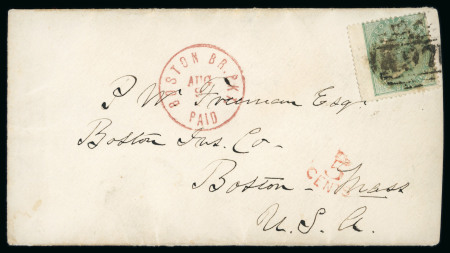 BOSTON BR. PK.
AUG
9
PAID
P Wm Freeman Esq.
Boston Ins. Co.
Boston Mass
5
CENTS
U.S.A.